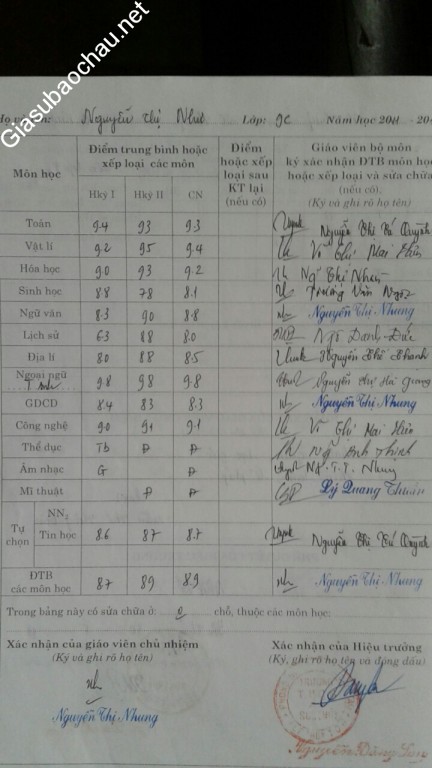 Giasubaochau.net
Họ và tên: Nguyễn Thị Như Lớp: 9C Năm học 20
Môn học
Điểm trung bình hoặc xếp loại các môn
Hkỳ I Hkỳ II CN
Điểm hoặc xếp loại sau KT lại (nếu có)
Giáo viên bộ môn ký xác nhận ĐTB môn học hoặc xếp loại và sửa chữa (nếu có).
(Ký và ghi rõ họ tên)
Toán 9.4 93 9.3 Nguyễn Thị Tú Quỳnh
Vật lí 9.2 95 9.4 Võ Thị Mai Hiên
Hóa học 9.0 93 9.2 Ng Thị
Sinh học 8.8 78 8.1 Trương Văn
Ngữ văn 8.3 90 8.8 Nguyễn Thị Nhung
Lịch sử 63 88 8.0 Ngô Danh Đức
Địa lí 80 88 8.5 Nguyễn Thị Thanh
Ngoại ngữ T Anh 9.8 98 9.8 Nguyễn Thị Hà Giang
GDCD 8.4 83 8.3 Nguyễn Thị Nhung
Công nghệ 90 91 9.1 Võ Thị Mai Hiên
Thể dục Tb Đ Đ Anh Thịnh
Âm nhạc G Đ Ng. T. T. Nhung
Mĩ thuật Đ Đ Lý Quang Thuấn
Tự chọn
NN
Tin học 8.6 87 8.7 Nguyễn Thị Tú Quỳnh
ĐTB các môn học 87 89 8.9 Nguyễn Thị Nhung
Trong bảng này có sửa chữa ở: 0 chỗ, thuộc các môn học:
Xác nhận của giáo viên chủ nhiệm
(Ký và ghi rõ họ tên)
Nguyễn Thị Nhung
Xác nhận của Hiệu trưởng
(Ký, ghi rõ họ tên và đóng dấu)
Nguyễn Đăng